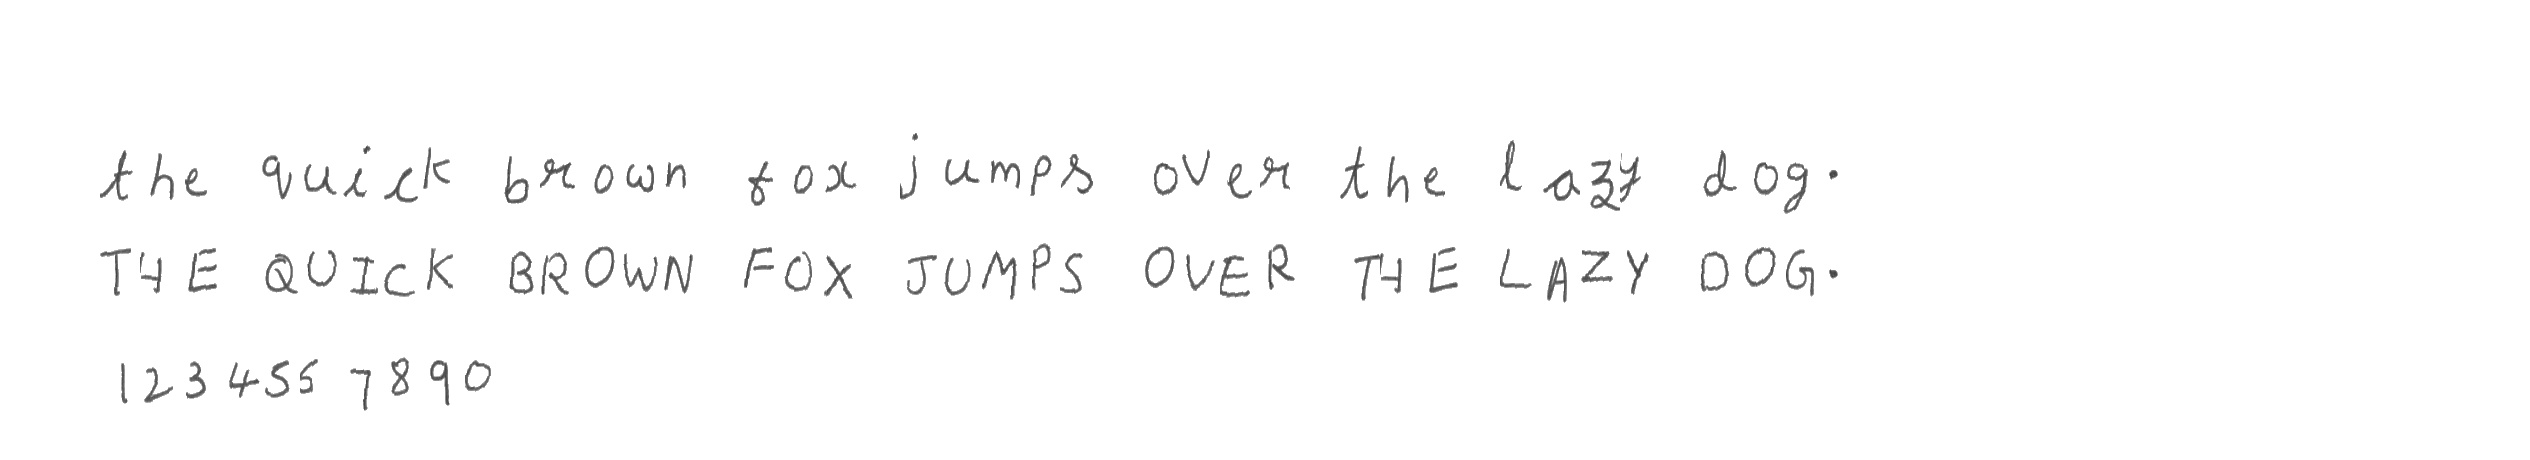 the quick brown fox jumps over the lazy dog.
THE QUICK BROWN FOX JUMPS OVER THE LAZY DOG.
1234557890